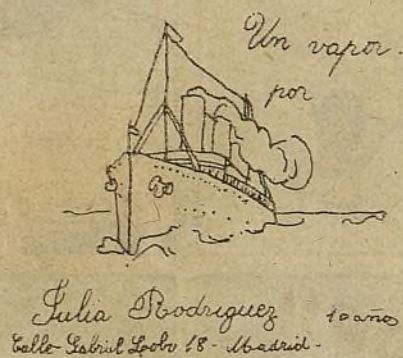 Un vapor.
por
Julia Rodriguez 10 años
Calle Gabriel Lobo 18 - Madrid -